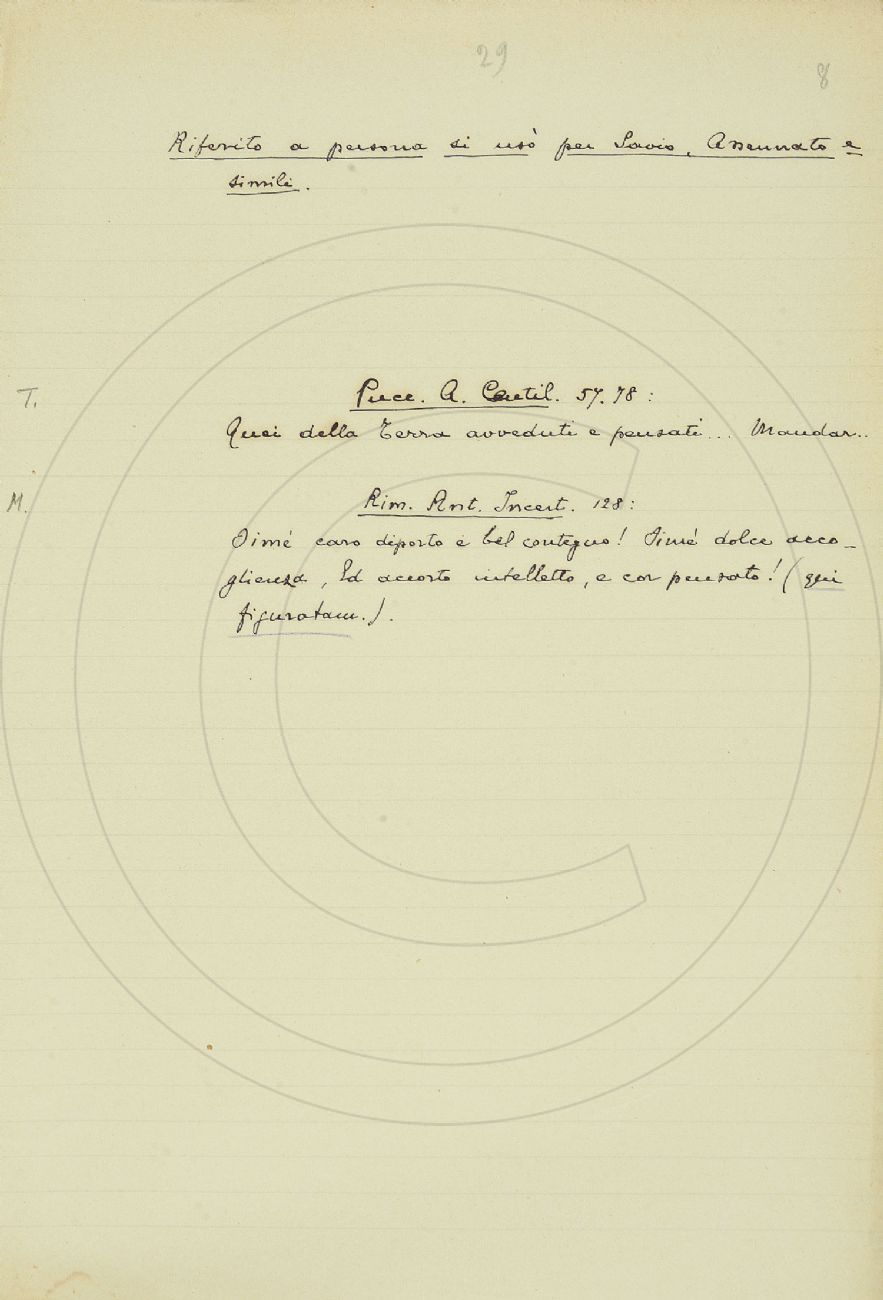 29
8
Riferito a persona si usò per Savio, Assennato e
simili.
T.
Pucc. A. Centil. 57. 78:
Quei della Terra avveduti e pensati... Mandar..
M.
Rim. Ant. Incert. 128:
Oimé caro diporto e bel contegno! Oimé dolce acco-
glienza, Ed accorto intelletto, e cor pensato! (qui
figuratam.).